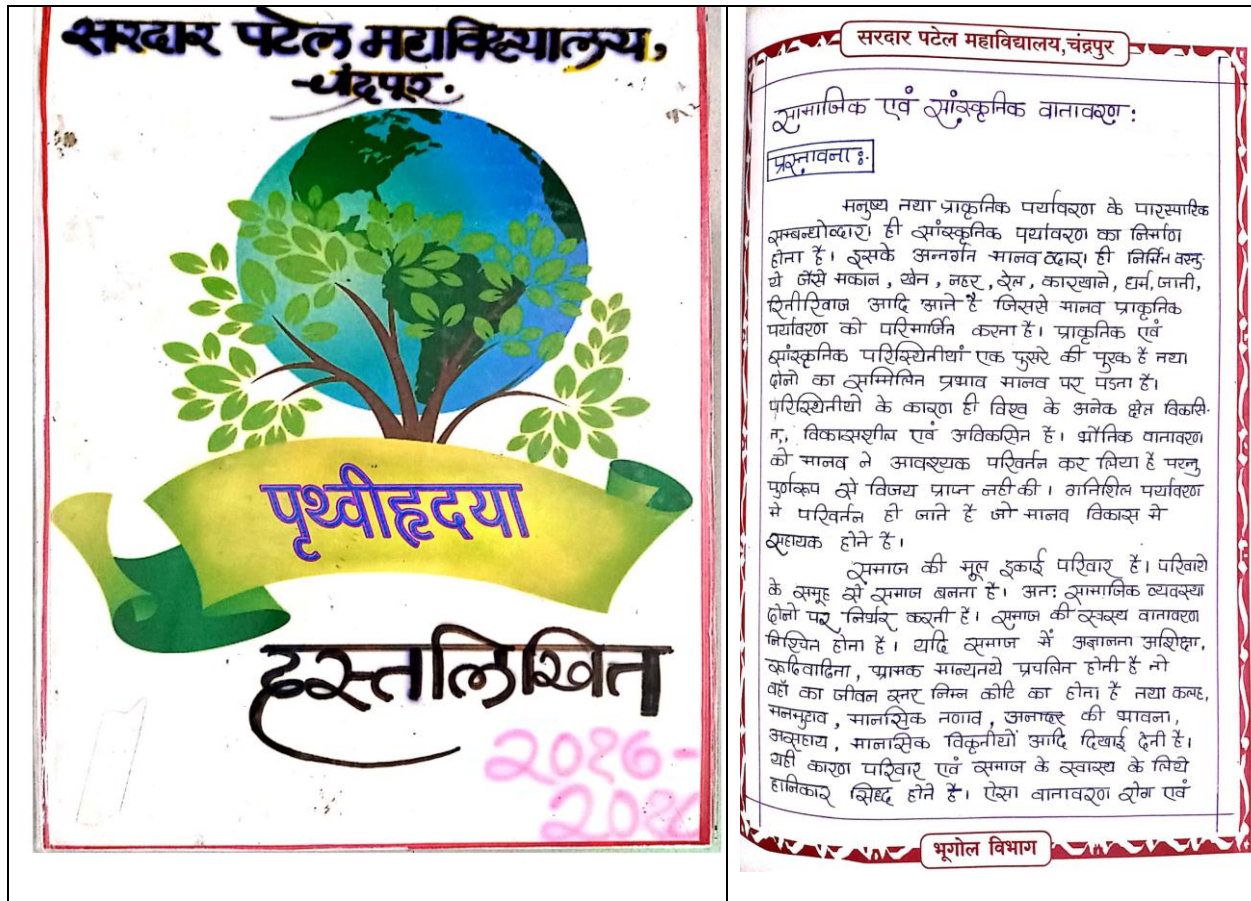 सरदार पटेल महाविद्यालय,
चंद्रपूर.
पृथ्वीहृदया
हस्तलिखित
सरदार पटेल महाविद्यालय,चंद्रपुर
सामाजिक एवं सांस्कृतिक वातावरण :
प्रस्तावना :-
मनुष्य तथा प्राकृतिक पर्यावरण के पारस्पारिक
सम्बन्धोव्दारा ही सांस्कृतिक पर्यावरण का निर्माण
होता है। इसके अन्तर्गत मानव व्दारा ही निर्मित वस्तु-
ये जैसे मकान , खेत , नहर , रेल , कारखाने , धर्म, जाती,
रितीरिवाज आदि आते है जिससे मानव प्राकृतिक
पर्यावरण को परिमार्जित करता है। प्राकृतिक एवं
सांस्कृतिक परिस्थितीयां एक दुसरे की पूरक है तथा
दोनो का सम्मिलित प्रभाव मानव पर पडता है।
परिस्थितीयो के कारण ही विश्व के अनेक क्षेत्र विकसि-
त, विकासशील एवं अविकसित है। भौतिक वातावरण
को मानव ने आवश्यक परिवर्तन कर लिया है परन्तु
पुर्णरूप से विजय प्राप्त नही की। गतिशिल पर्यावरण
मे परिवर्तन हो जाते है जो मानव विकास मे
सहायक होते है।
समाज की मूल इकाई परिवार है। परिवारो
के समूह से समाज बनता है। अतः सामाजिक व्यवस्था
दोनो पर निर्भर करती है। समाज की स्वस्थ वातावरण
निश्चित होता है। यदि समाज में अज्ञानता अशिक्षा,
रूढिवादिता, भ्रामक मान्यतये प्रचलित होती है तो
वहाँ का जीवन स्तर निम्न कोटि का होता है तथा कलह,
मनमुटाव , मानसिक तणाव , अनादर की भावना,
असहाय , मानसिक विकृतीयाँ आदि दिखाई देती है।
यही कारण परिवार एवं समाज के स्वास्थ के लिये
हानिकार सिध्द होते है। ऐसा वातावरण रोग एवं
भूगोल विभाग